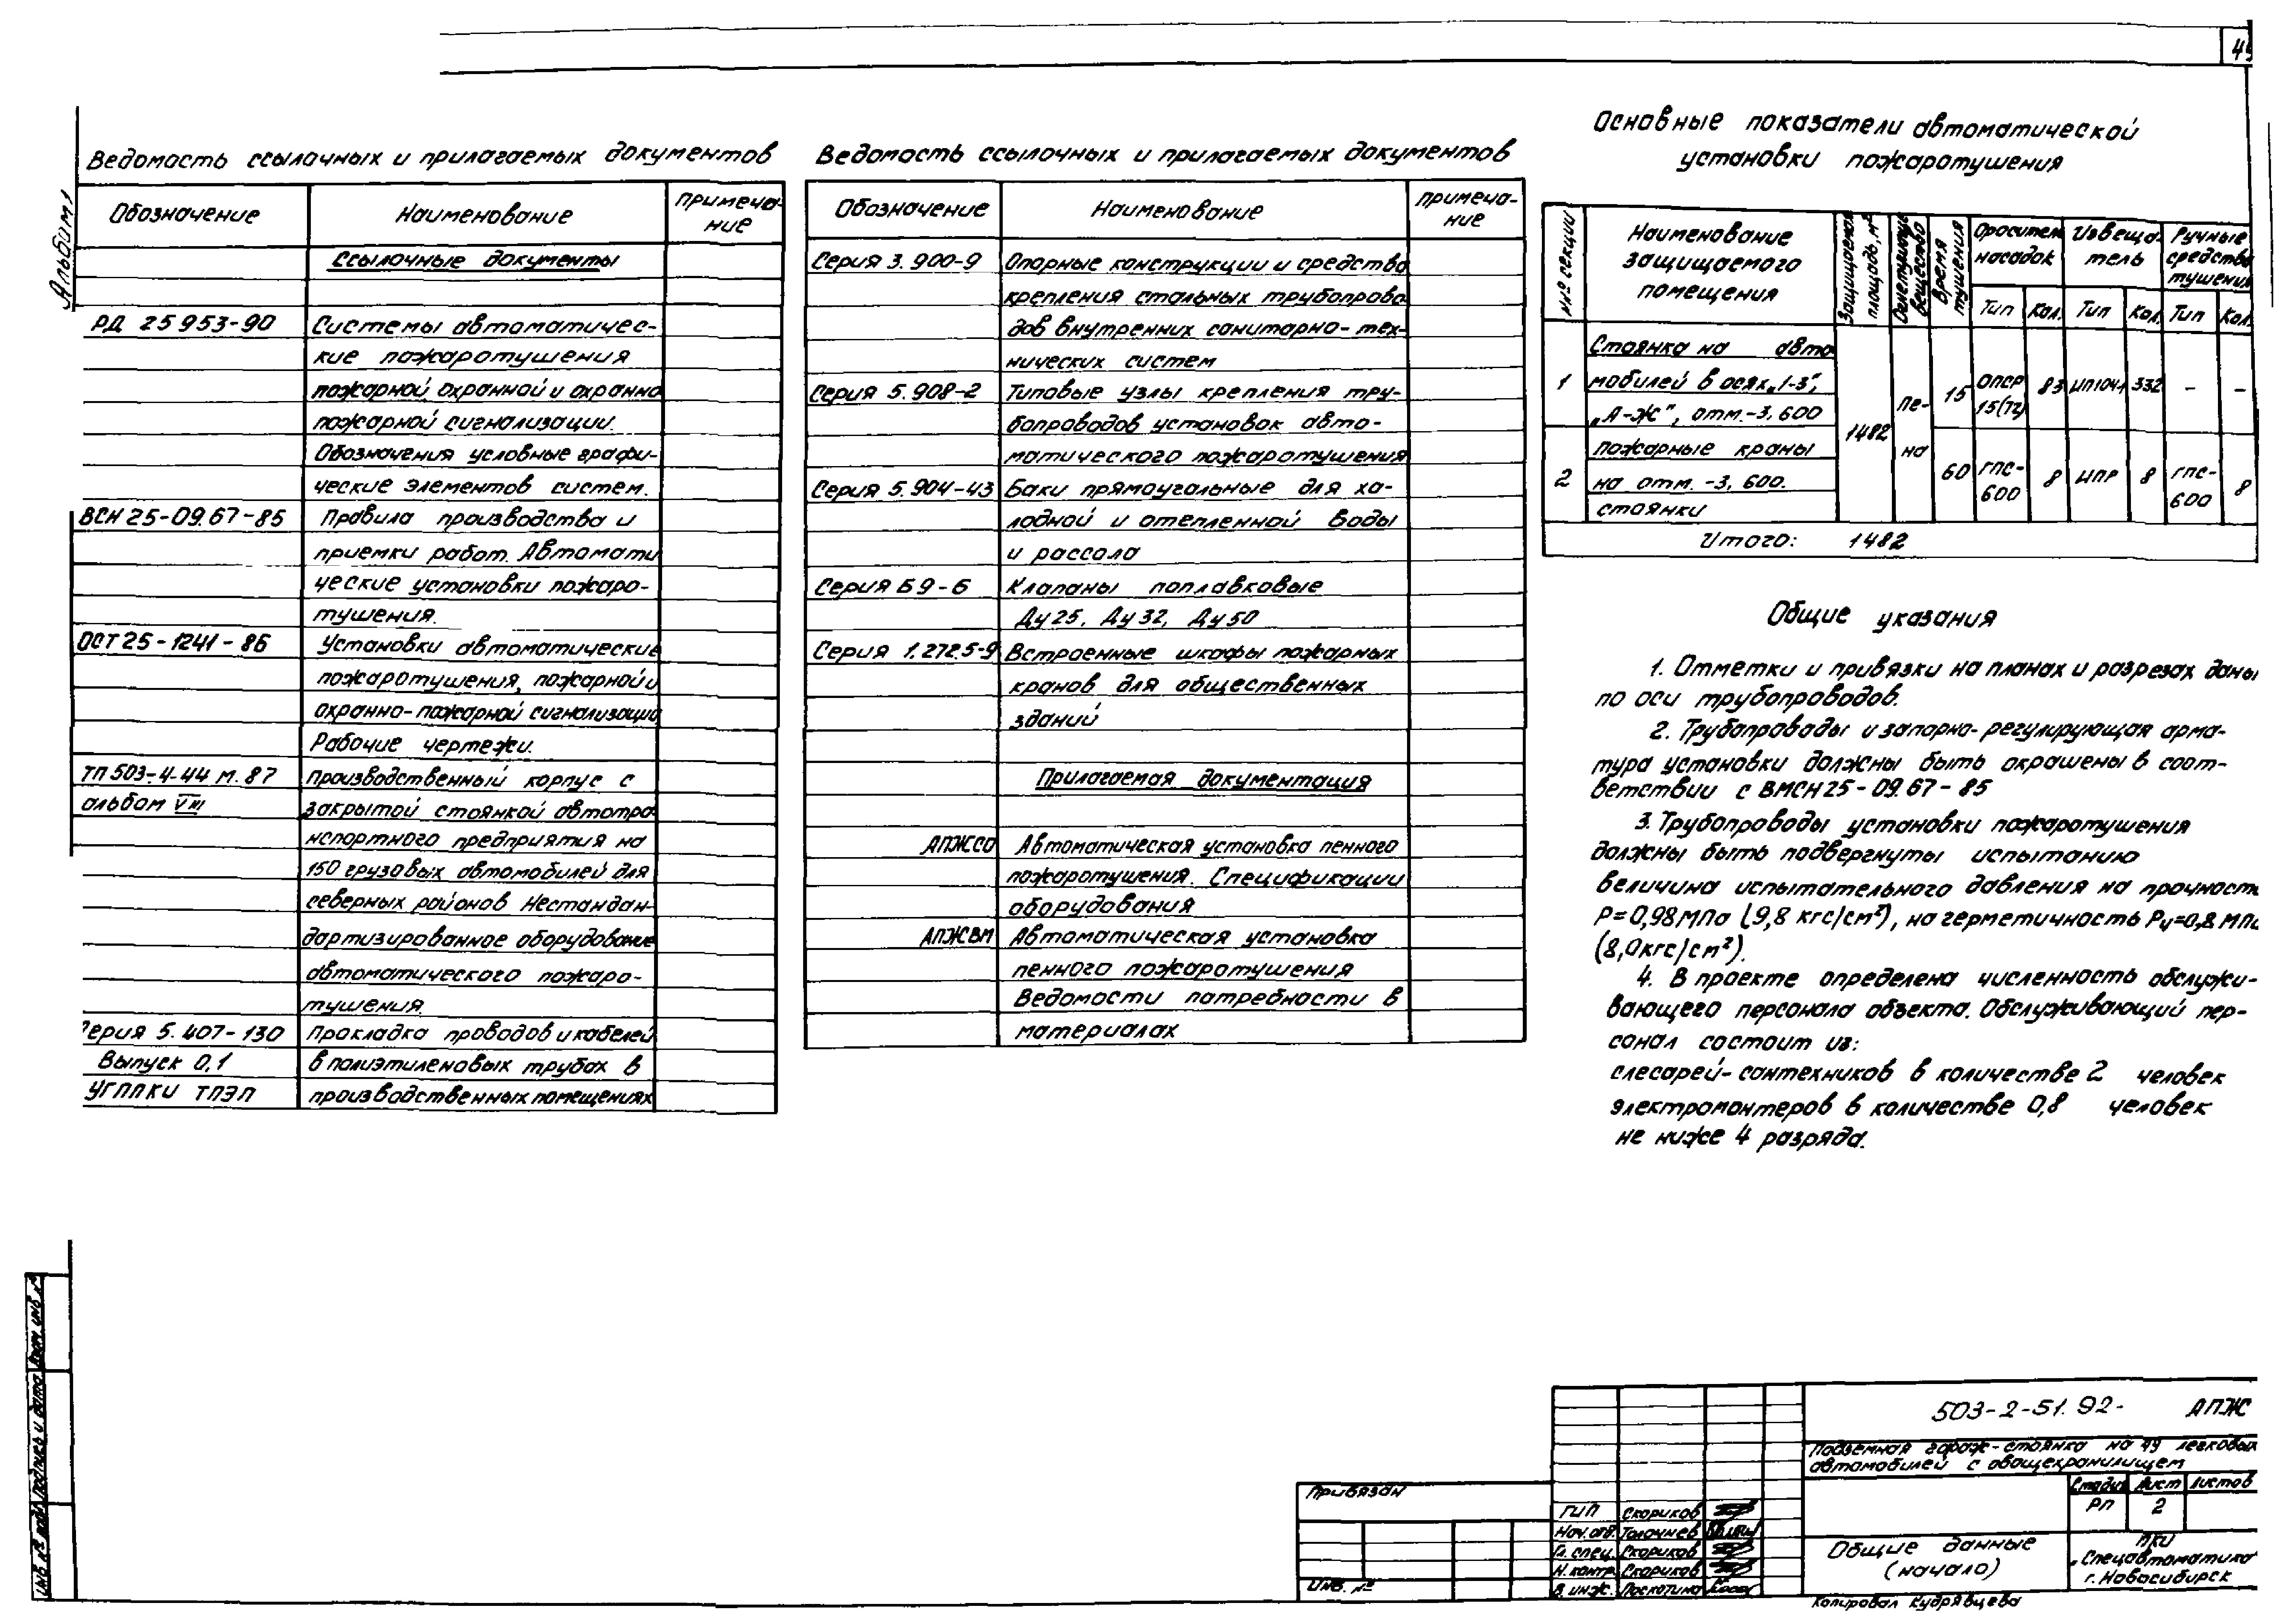 Альбом 1
Ведомость ссылочных и прилагаемых документов
Обозначение Наименование Примеча-
ние
Ссылочные документы
РД 25 953-90 Системы автоматичес-
кие пожаротушения
пожарной, охранной и охранно
пожарной сигнализации.
Обозначения условные графи-
ческие элементов систем.
ВСН 25-09.67-85 Правила производства и
приемки работ. Автомати
ческие установки пожаро-
тушения.
ОСТ 25-1241-86 Установки автоматические
пожаротушения, пожарной и
охранно-пожарной сигнализации
Рабочие чертежи.
ТП 503-4-44 м. 87 производственный корпус с
альбом VIII закрытой стоянкой автотра
нспортного предприятия на
150 грузовых автомобилей для
северных районов Нестандан-
дартизированное оборудование
автоматического пожаро-
тушения.
Серия 5.407-130 Прокладка проводов и кабелей
Выпуск 0,1 в полиэтиленовых трубах в
УГППКИ ТПЭП производственных помещениях
Ведомость ссылочных и прилагаемых документов
Обозначение Наименование примеча-
ние
Серия 3.900-9 Опорные конструкции и средства
крепления стальных трубопрово
дов внутренних санитарно-тех-
нических систем
Серия 5.908-2 Типовые узлы крепления тру-
бопроводов установок авто-
матического пожаротушения
Серия 5.904-43 Баки прямоугольные для хо-
лодной и отепленной воды
и рассола
Серия Б9-6 Клапаны поплавковые
Ду 25, Ду 32, Ду 50
Серия 1.272.5-9 Встроенные шкафы пожарных
кранов для общественных
зданий
Прилагаемая документация
АПЖСО Автоматическая установка пенного
пожаротушения. Спецификации
оборудования
АПЖВМ Автоматическая установка
пенного пожаротушения
Ведомости потребности в
материалах
Основные показатели автоматической
установки пожаротушения
№№ секции Наименование защищаемого помещения Защищаемая площадь, м² Огнетушащее вещество Время тушения Оросител насадок Извеща-тель Ручные средства тушения
Тип Кол. Тип Кол. Тип Кол.
1 Стоянка на авто
мобилей в осях „1-3", 15 ОПСР 15(72) 83 ИП104-1 332 - -
„А-Ж", отм.-3,600 1482 Пе-на
2 пожарные краны
на отм. -3,600. 60 ГПС-600 8 ИПР 8 ГПС-600 8
стоянки
Итого: 1482
Общие указания
1. Отметки и привязки на планах и разрезах даны
по оси трубопроводов.
2. Трубопроводы и запорно-регулирующая арма-
тура установки должны быть окрашены в соот-
ветствии с ВМСН 25-09.67-85
3. Трубопроводы установки пожаротушения
должны быть подвергнуты испытанию
величина испытательного давления на прочность
Р=0,98 МПа (9,8 кгс/см²), на герметичность Ри=0,8 МПа
(8,0кгс/см²).
4. В проекте определена численность обслужи-
вающего персонала объекта. Обслуживающий пер-
сонал состоит из:
слесарей-сантехников в количестве 2 человек
электромонтеров в количестве 0,8 человек
не ниже 4 разряда.
Инв. № подл. Подпись и дата Взам. инв. №
Привязан
Инв. №
ГИП Скориков
Нач. отд. Толочнев
Гл. спец. Скориков
Н. контр. Скориков
В. инж. Поскотина
503-2-51.92- АПЖ
Подземная гараж-стоянка на 49 легковых
автомобилей с овощехранилищем
Стадия Лист Листов
РП 2
Общие данные
(начало)
ПКИ
„Спецавтоматика
г. Новосибирск
Копировал Кудрявцева